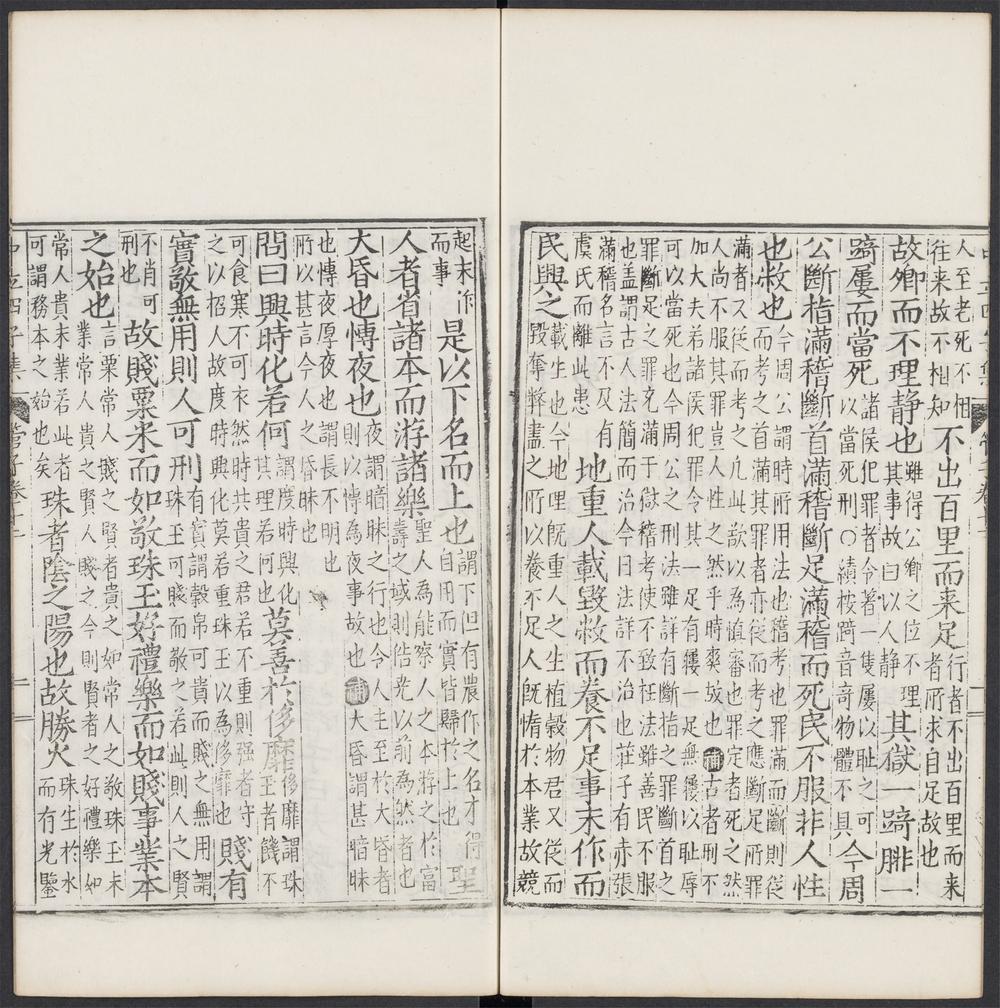 人至老死不相往来故不相知不出百里而来足行者不出百里而来者所求自足故也
故卿而不理静也雖得公卿之位不理其事故曰以人静其獄一踦腓一
踦屨而當死諸侯犯罪者令著一隻屨以耻之可以當死刑〇續桉踦音竒物體不具今周
公斷指滿稽斷首滿稽斷足滿稽而死民不服非人性
也敝也今周公謂時所用法也稽考也罪滿而斷則從而考之首滿其罪者亦從而考之應斷足而
滿者又從而考之凡此欲以為慎審也罪定者死之然人尚不服其罪豈人性之然乎時獘故也補古者刑不
加大夫若諸侯犯罪令其一足有屨一足無屨以耻辱可以當死也今周公之刑法雖詳有斷指之罪斷首之
罪斷足之罪充滿于獄稽考使不致枉法雖善民不服也盖謂古人法簡而治今日法詳不治也莊子有赤張
滿稽名言不及有虞氏而離此患地重人載毀敝而養不足事末作而
民興之載生也今地哩旣重人之生植穀物君又從而毀奪弊盡之所以養不足人旣惰於本業故競
起末作而事是以下名而上也謂下但有農作之名才得自用而實皆歸於上也聖
人者省諸本而游諸樂聖人為能察人之本游之於富壽之域則浩㒵以前為然者也
大昏也愽夜也夜謂暗昧之行也令人主至於大昏者則以愽為夜事故也補大昏謂甚暗昧
也愽夜厚夜也謂長不明也所以甚言今人之昏昧也
問曰興時化若何謂度時興化其理若何也莫善於侈靡侈靡謂珠玉者饑不
可食寒不可衣然時共貴之君若不重則强者守之以招人故度時興化莫若重珠玉以為侈靡也賤有
實敬無用則人可刑有實謂榖帛可貴而賤之無用謂珠玉可賤而敬之若此則人之賢
不肖可刑也故賤粟米而如敬珠玉好禮樂而如賤事業本
之始也言粟常人賤之賢者貴之如常人之敬珠玉末業常人貴之賢人賤之今則賢者之好禮樂如
常人貴末業若此者可謂務本之始也矣珠者陰之陽也故勝火珠生於水而有光鑒